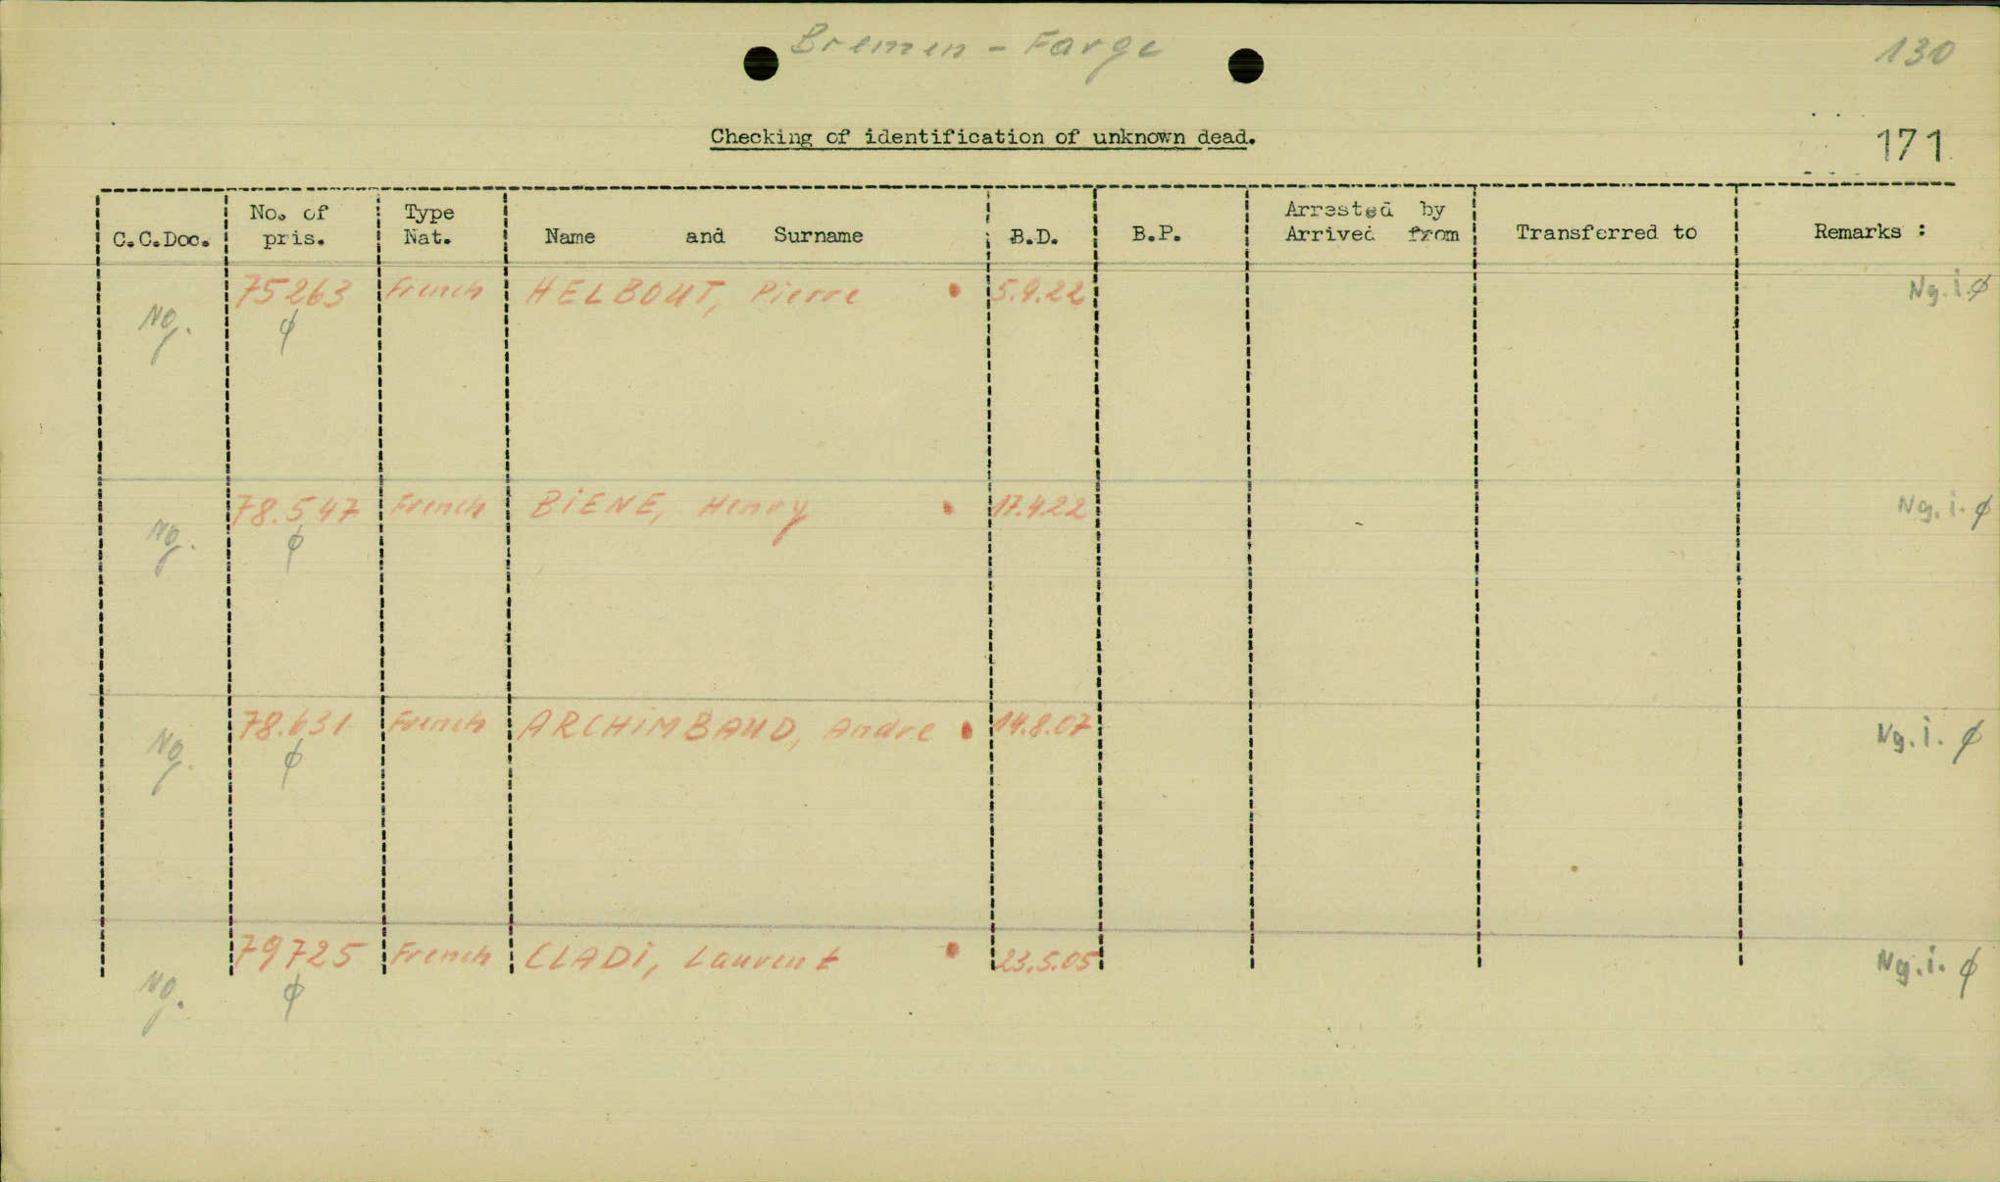 Bremen - Farge
130
Checking of identification of unknown dead.
171
C.C.Doc. No. of pris. Type Nat. Name and Surname B.D. B.P. Arrested by Arrived from Transferred to Remarks :
75263 French HELBOUT, Pierre 5.9.22 Ng.i.ϕ
Ng. ϕ
78.547 French BiENE, Henry 17.4.22 Ng.i.ϕ
Ng. ϕ
78.631 French ARCHiMBAUD, Andre 14.8.07 Ng.i.ϕ
Ng. ϕ
79725 French CLADi, Laurent 23.5.05 Ng.i.ϕ
Ng. ϕ